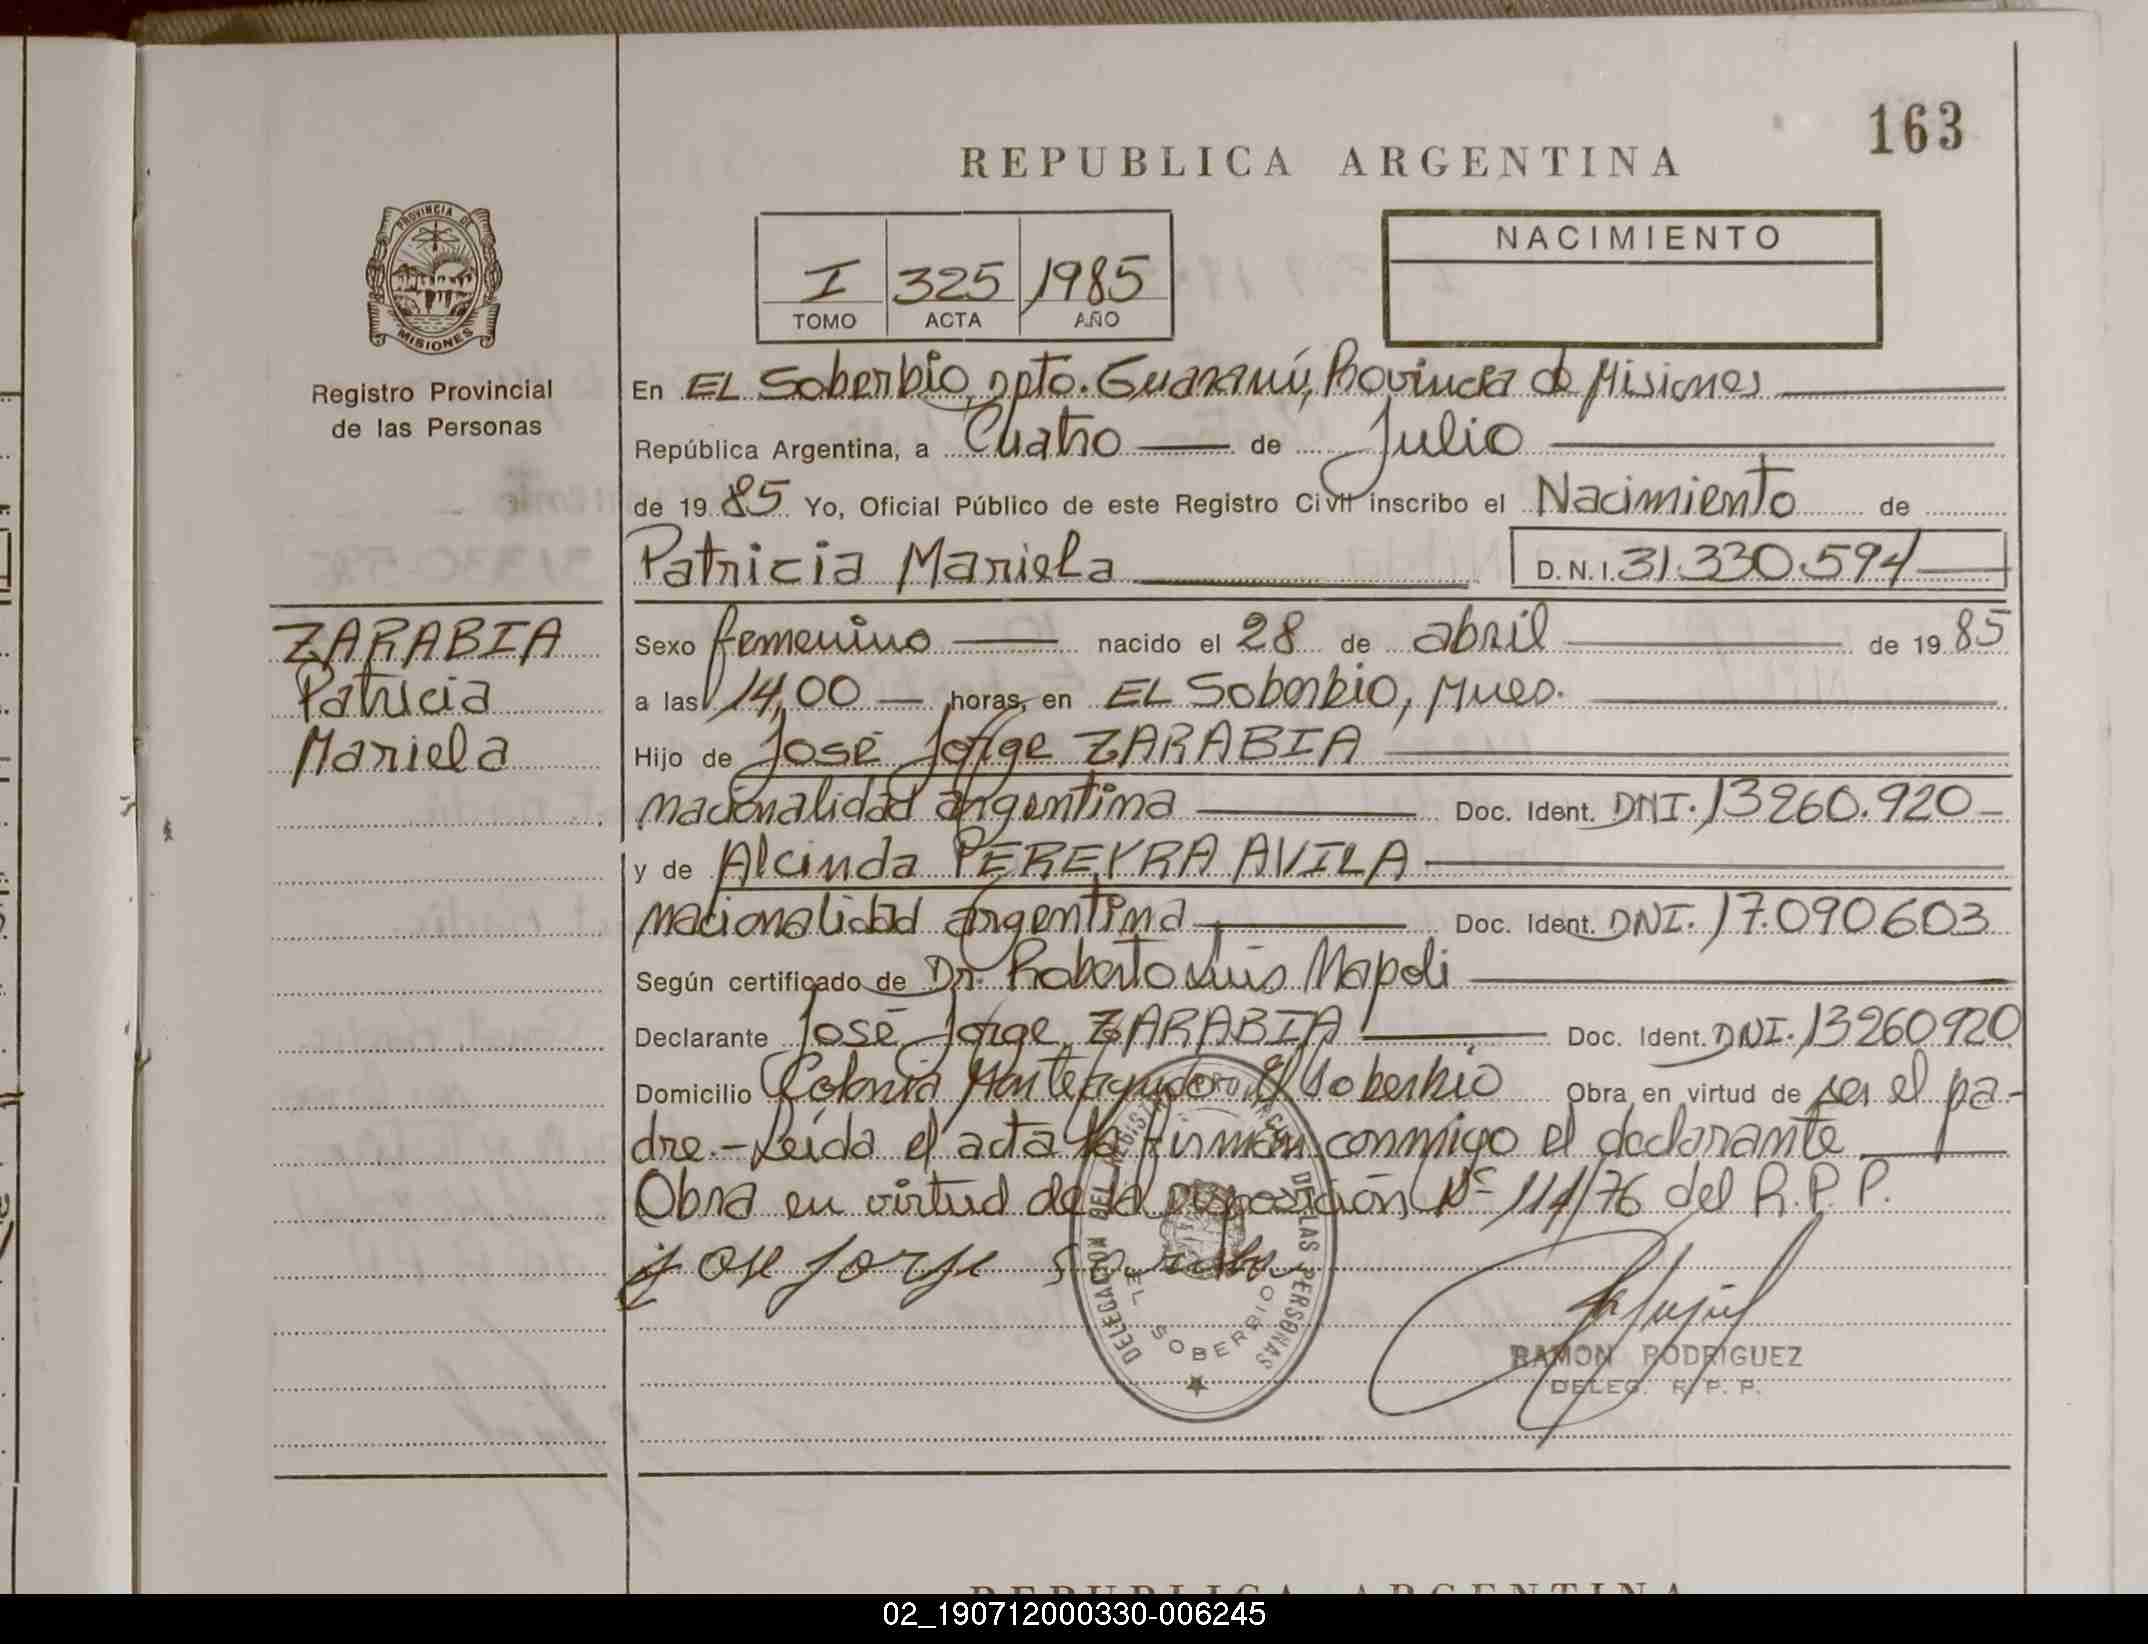 163
REPUBLICA ARGENTINA
PROVINCIA DE
MISIONES
Registro Provincial
de las Personas
I 325 1985
TOMO ACTA AÑO
NACIMIENTO
En EL Soberbio, Dpto. Guaraní, Provincia de Misiones
República Argentina, a Cuatro de Julio
de 1985 Yo, Oficial Público de este Registro Civil inscribo el Nacimiento de
Patricia Mariela D.N.I. 31.330.594
ZARABIA
Patricia
Mariela
Sexo femenino nacido el 28 de abril de 1985
a las 14,00 horas, en EL Soberbio, Mnes.
Hijo de José Jorge ZARABIA
nacionalidad argentina Doc. Ident. DNI. 13260.920
y de Alcinda PEREYRA AVILA
nacionalidad argentina Doc. Ident. DNI. 17.090603
Según certificado de Dr. Roberto Luis Napoli
Declarante José Jorge ZARABIA Doc. Ident. DNI. 13260920
Domicilio Colonia Monteagudo El Soberbio Obra en virtud de ser el pa-
dre.- Leída el acta la firman conmigo el declarante
Obra en virtud de la Disposición Nº 114/76 del R.P.P.
Jose Jorge
DELEGACION DEL REGISTRO PROVINCIAL DE LAS PERSONAS
EL SOBERBIO
RAMON RODRIGUEZ
DELEG. R. P. P.
REPUBLICA ARGENTINA
02_190712000330-006245